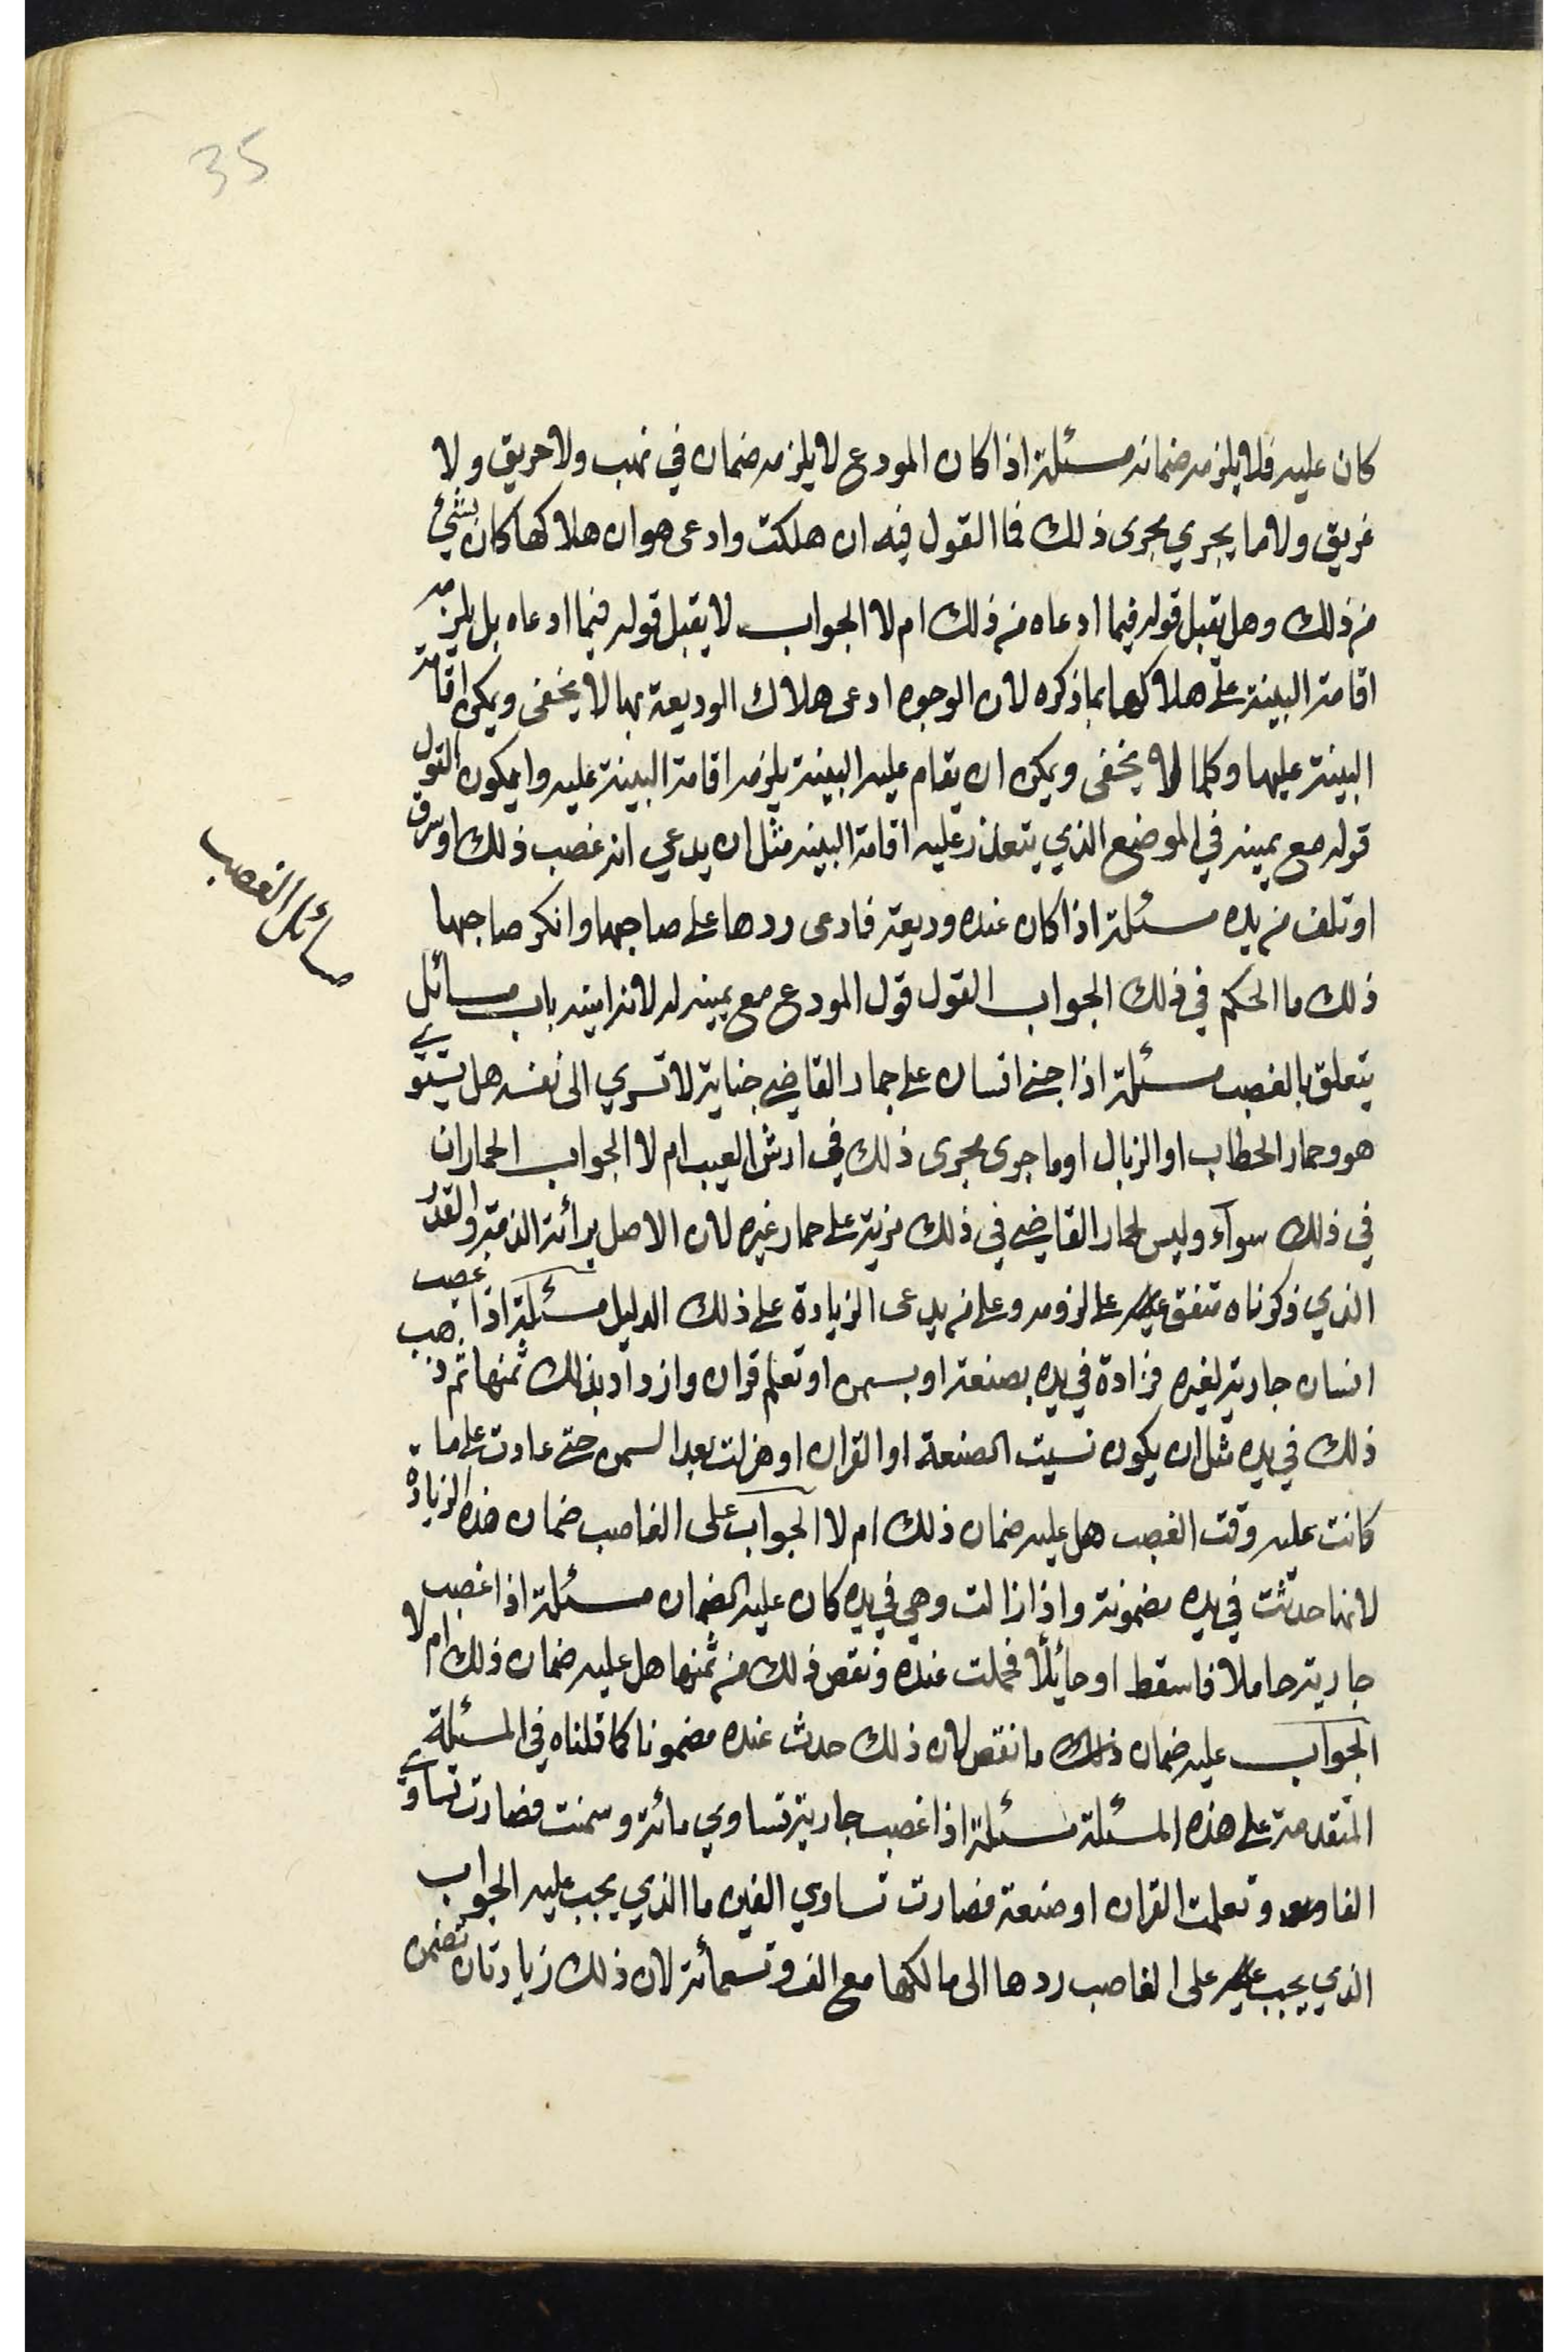 35
كان عليه فلا يلزمه ضمانه مسئلة اذا كان المودع لا يلزمه ضمان في نهب ولا حريق ولا
غريق ولا ما يجري مجرى ذلك فما القول فيه ان هلكت وادعى هو ان هلاكها كان بشئ
من ذلك وهل يقبل قوله فيما ادعاه من ذلك ام لا الجواب لا يقبل قوله فيما ادعاه بل يلزمه
اقامة البينة على هلاكها بما ذكره لان الوجوه ادعى هلاك الوديعة بها لا يخفى ويمكن اقامة
البينة عليها وكلما لا يخفى ويمكن ان يقام عليه البينة يلزمه اقامة البينة عليه وا يكون القول
قوله مع يمينه في الموضع الذي يتعذر عليه اقامة البينه مثل ان يدعي انه غصب ذلك او سرق
او تلف من يده مسئلة اذا كان عنده وديعة فادعى ردها على صاحبها وانكر صاحبها
ذلك ما الحكم في ذلك الجواب القول قول المودع مع يمينه له لانه امينه باب مسائل
يتعلق بالغصب مسئلة اذا جنى انسان على حمار القاضي جناية لا تسري الى نفسه هل يستوي
هو وحمار الحطاب او الزبال او ما جرى مجرى ذلك في ارش العيب ام لا الجواب الحماران
في ذلك سوآء وليس لحمار القاضي في ذلك مزية على حمار غيره لان الاصل برائة الذمة والقدر
الذي ذكرناه متفق على لزومه وعلى من يدعى الزيادة على ذلك الدليل مسئلة اذا غصب
انسان جارية لغيره فزادة في يده بصنعة او بسمن او تعلم قران وازداد بذلك ثمنها ثم ذهب
ذلك في يده مثل ان يكون نسيت الصنعة او القران او هزلت بعد السمن حتى عادت على ما
كانت عليه وقت الغصب هل عليه ضمان ذلك ام لا الجواب على الغاصب ضمان هذه الزيادة
لانها حدثت في يده مضمونة واذا زالت وهي في يده كان عليه الضمان مسئلة اذا غصب
جارية حاملا فاسقط او حائلا فحملت عنده ونقص ذلك من ثمنها هل عليه ضمان ذلك ام لا
الجواب عليه ضمان ذلك ما نقص لان ذلك حدث عنده مضمونا كما قلناه في المسئلة
المتقدمة على هذه المسئلة مسئلة اذا غصب جارية تساوي مائة وسمنت فصارت تساوي
الفا وتعلمت القران او صنعة فصارت تساوي الفين ما الذي يجب عليه الجواب
الذي يجب على الغاصب ردها الى مالكها مع الف وتسعمائة لان ذلك زيادتان تضمن
مسائل الغصب